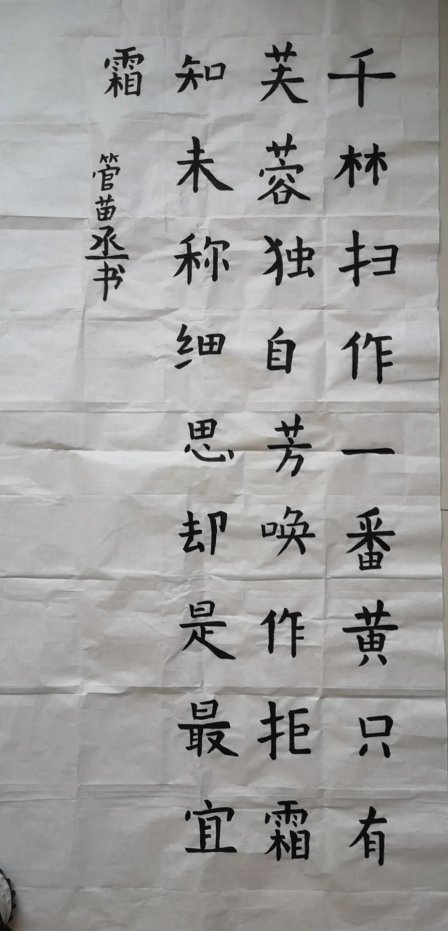 千林扫作一番黄只有
芙蓉独自芳唤作拒霜
知未称细思却是最宜
霜
管苗丞书